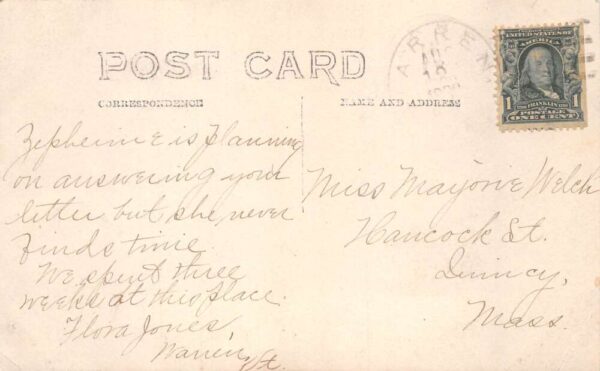 POST CARD
CORRESPONDENCE
NAME AND ADDRESS
WARREN
UNITED STATES OF AMERICA
FRANKLIN
POSTAGE
1 ONE CENT 1
Zepheirne is planning
on answering your
letter but she never
finds time.
We spent three
weeks at this place.
Flora Jones,
Warren, Vt.
Miss Marjorie Welch
Hancock St.
Quincy,
Mass.